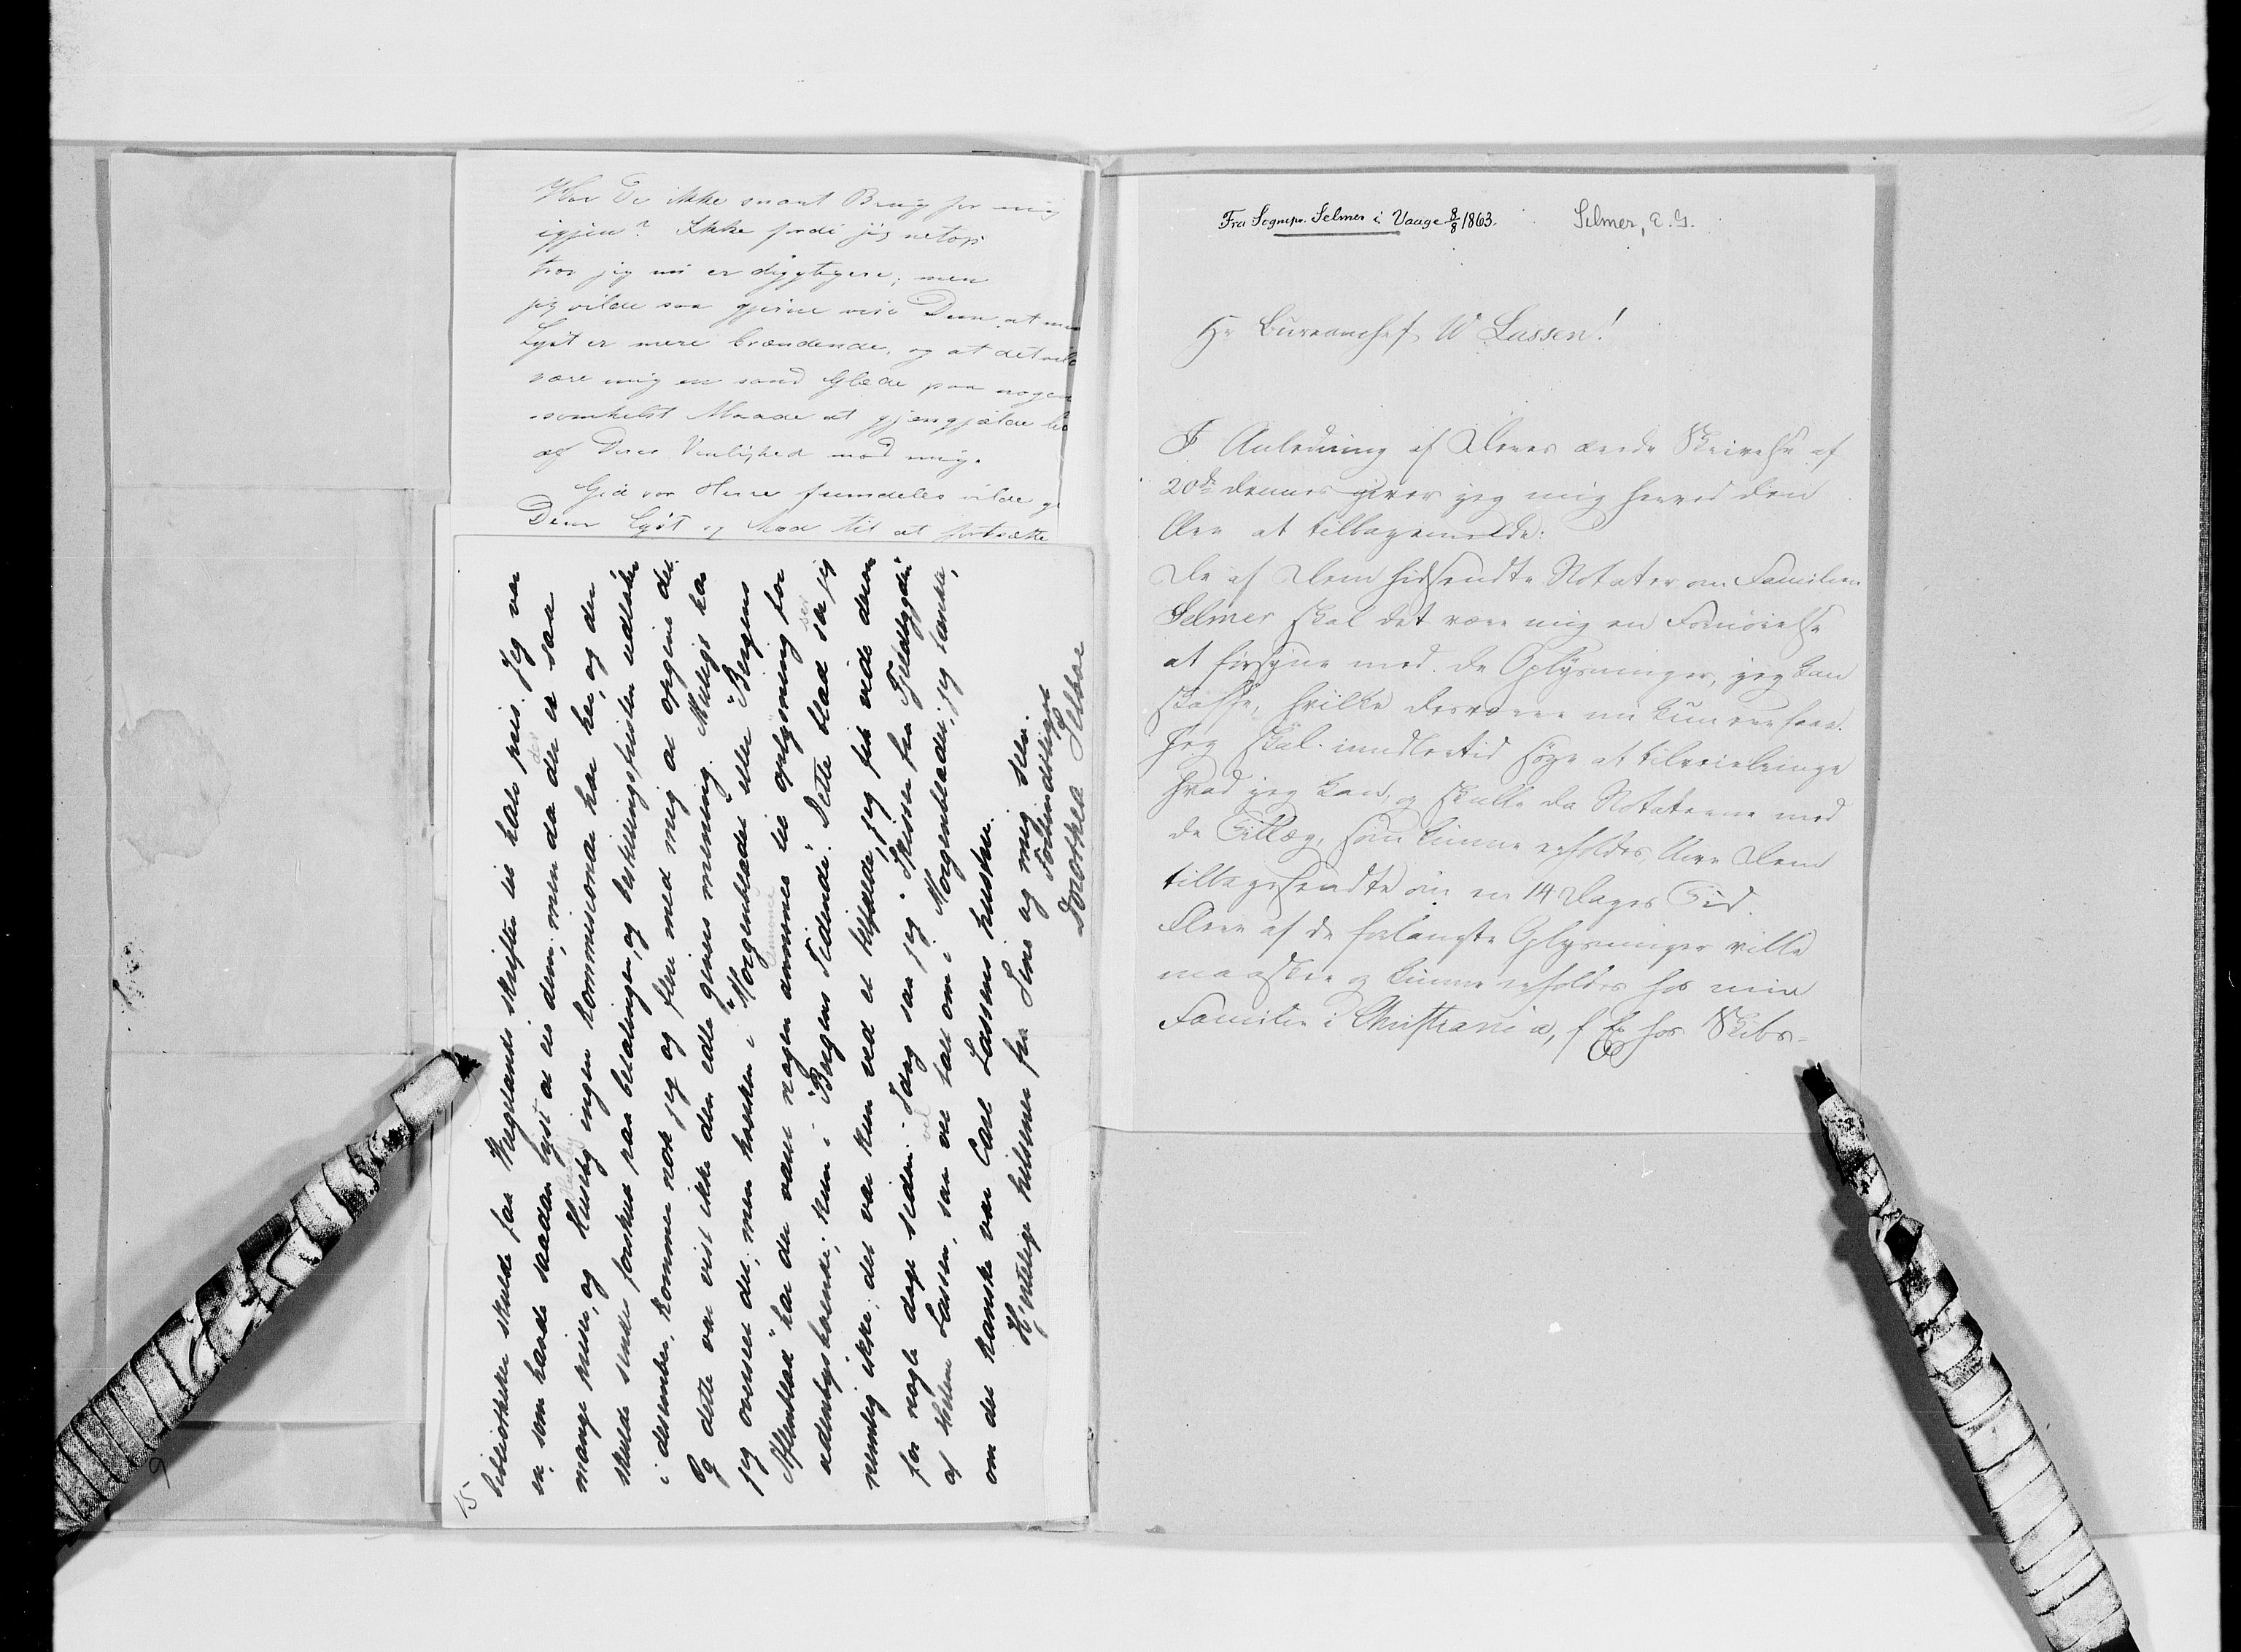 Har De ikke snart Brug for mig
igjen? Ikke fordi jeg netop
tror jeg nu er dygtigere; men
jeg vilde saa gjerne vise Dem, at
Lyst er mere brændende, og at det
være mig en sand Glæde paa nogen
somhelst Maade at gjengjælde
af Deres Venlighed mod mig.
Gid vor Herre fremdeles vilde
Dem Lyst og Mod til at fortsætte
15
biblioteker skulde faa Wegelands skrifter til halv pris. Jeg var
en, som havde saadan lyst at eie dem; men da der er saa
der
mange prise, og Huseby ingen kommissionær har her, og der
Huseby
skulde sendes forskud paa betalingen, og bestillingsfristen udløber
i desember, kommer nok jeg og flere med mig at opgive det.
Og dette var vist ikke den ædle givers mening. Muligt har
jeg overset det; men hverken i "Morgenbladet" eller "Bergens
Aftenblad" har der været nogen annonse til oplysning for
annonce
udenbysboende; kun i "Bergens Tidende". Dette blad ser jeg
ser
nemlig ikke; det var kun ved et tilfælde, jeg fik vide derom
for nogle dage siden. Idag saa jeg i "Skisser fra Fjeldbygden"
af Helene Lassen, saa vel talt om i Morgenbladet; jeg tænkte,
vel
om det kanske var Carl Lassens hustru.
Hjertelige hilsener fra Lina og mig selv.
Forbindtligst
Dorothea Schoe
9
Fra Sognepr. Selmer i Vaage 8/8 1863.
Selmer, E. G.
Hr Bureauchef W Lassen!
I Anledning af Deres ærede Skrivelse af
20de dennes giver jeg mig herved den
Ære at tilbagemelde:
De af Dem hidsendte Notater om Familien
Selmer skal det være mig en Fornøielse
at forsyne med de Oplysninger, jeg kan
skaffe, hvilke desværre nu kun ere faae.
Jeg skal imidlertid søge at tilveiebringe
hvad jeg kan, og skulle da Notaterne med
de Tillæg, som kunne erholdes, blive Dem
tilbagesendte om en 14 Dages Tid.
Flere af de forlangte Oplysninger ville
maaskee og kunne erholdes hos min
Familie i Christiania, f Ex hos Skibs-